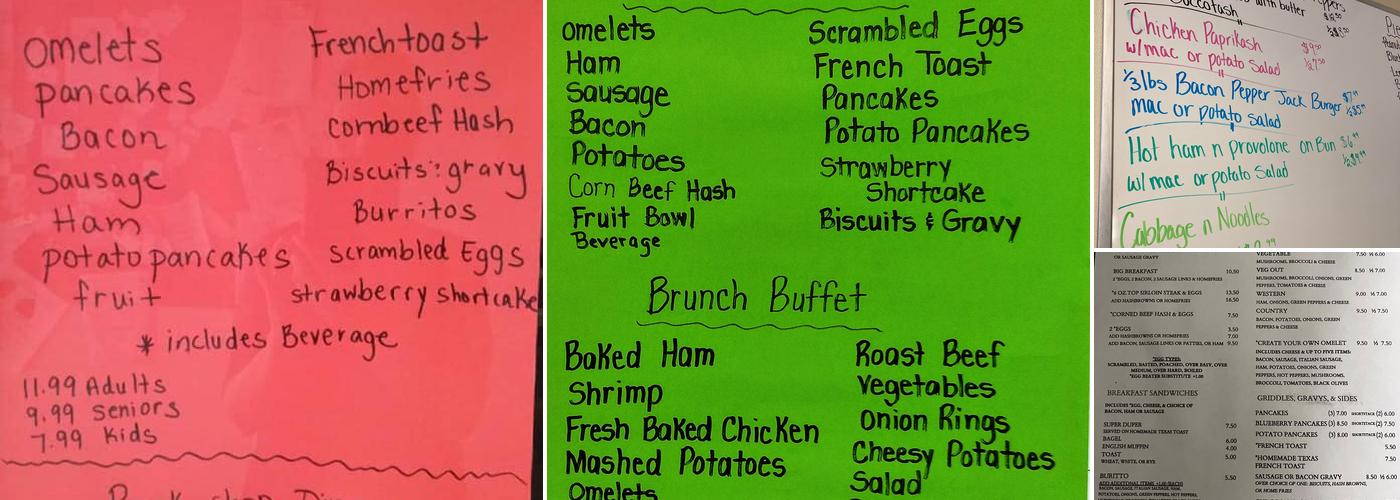 omelets
pancakes
Bacon
Sausage
Ham
potato pancakes
fruit
French toast
Homefries
cornbeef Hash
Biscuits: gravy
Burritos
scrambled Eggs
strawberry shortcake
* includes Beverage
11.99 Adults
9.99 Seniors
7.99 Kids
omelets
Ham
Sausage
Bacon
Potatoes
Corn Beef Hash
Fruit Bowl
Beverage
Scrambled Eggs
French Toast
Pancakes
Potato Pancakes
Strawberry
Shortcake
Biscuits & Gravy
Brunch Buffet
Baked Ham
Shrimp
Fresh Baked Chicken
Mashed Potatoes
Omelets
Roast Beef
Vegetables
Onion Rings
Cheesy Potatoes
Salad
Succotash
with butter
Chicken Paprikash
w/mac or potato Salad
1/3 lbs Bacon Pepper Jack Burger
mac or potato salad
Hot ham n provolone on Bun
w/mac or potato Salad
Cabbage n Noodles
OR SAUSAGE GRAVY
BIG BREAKFAST 10.50
2 *EGGS, 2 BACON, 2 SAUSAGE LINKS & HOMEFRIES
*6 OZ TOP SIRLOIN STEAK & EGGS 13.50
ADD HASHBROWNS OR HOMEFRIES 16.50
*CORNED BEEF HASH & EGGS 7.50
2 *EGGS 3.50
ADD HASHBROWNS OR HOMEFRIES 7.00
ADD BACON, SAUSAGE LINKS OR PATTIES, OR HAM 9.50
*EGG TYPES:
SCRAMBLED, BASTED, POACHED, OVER EASY, OVER
MEDIUM, OVER HARD, BOILED
*EGG BEATER SUBSTITUTE +1.00
BREAKFAST SANDWICHES
INCLUDES *EGG, CHEESE, & CHOICE OF
BACON, HAM OR SAUSAGE
SUPER DUPER 7.50
SERVED ON HOMEMADE TEXAS TOAST
BAGEL 6.00
ENGLISH MUFFIN 4.00
TOAST 5.00
WHEAT, WHITE, OR RYE
BURITTO 5.50
VEGETABLE 7.50 ½ 6.00
MUSHROOMS, BROCCOLI & CHEESE
VEG OUT 8.50 ½ 7.00
MUSHROOMS, BROCCOLI, ONIONS, GREEN
PEPPERS, TOMATOES & CHEESE
WESTERN 9.00 ½ 7.00
HAM, ONIONS, GREEN PEPPERS & CHEESE
COUNTRY 9.50 ½ 7.50
BACON, POTATOES, ONIONS, GREEN
PEPPERS & CHEESE
*CREATE YOUR OWN OMELET 9.50 ½ 7.50
INCLUDES CHEESE & UP TO FIVE ITEMS:
BACON, SAUSAGE, ITALIAN SAUSAGE,
HAM, POTATOES, ONIONS, GREEN
PEPPERS, HOT PEPPERS, MUSHROOMS,
BROCCOLI, TOMATOES, BLACK OLIVES
GRIDDLES, GRAVYS, & SIDES
PANCAKES (3) 7.00 SHORTSTACK (2) 6.00
BLUEBERRY PANCAKES (3) 8.50 SHORTSTACK (2) 7.50
POTATO PANCAKES (3) 8.00 SHORTSTACK (2) 6.00
*FRENCH TOAST 5.50
*HOMEMADE TEXAS 7.50
FRENCH TOAST
SAUSAGE OR BACON GRAVY 8.50 ½ 6.00
OVER CHOICE OF ONE: BISCUITS, HASH BROWNS,
OR HOMEFRIES